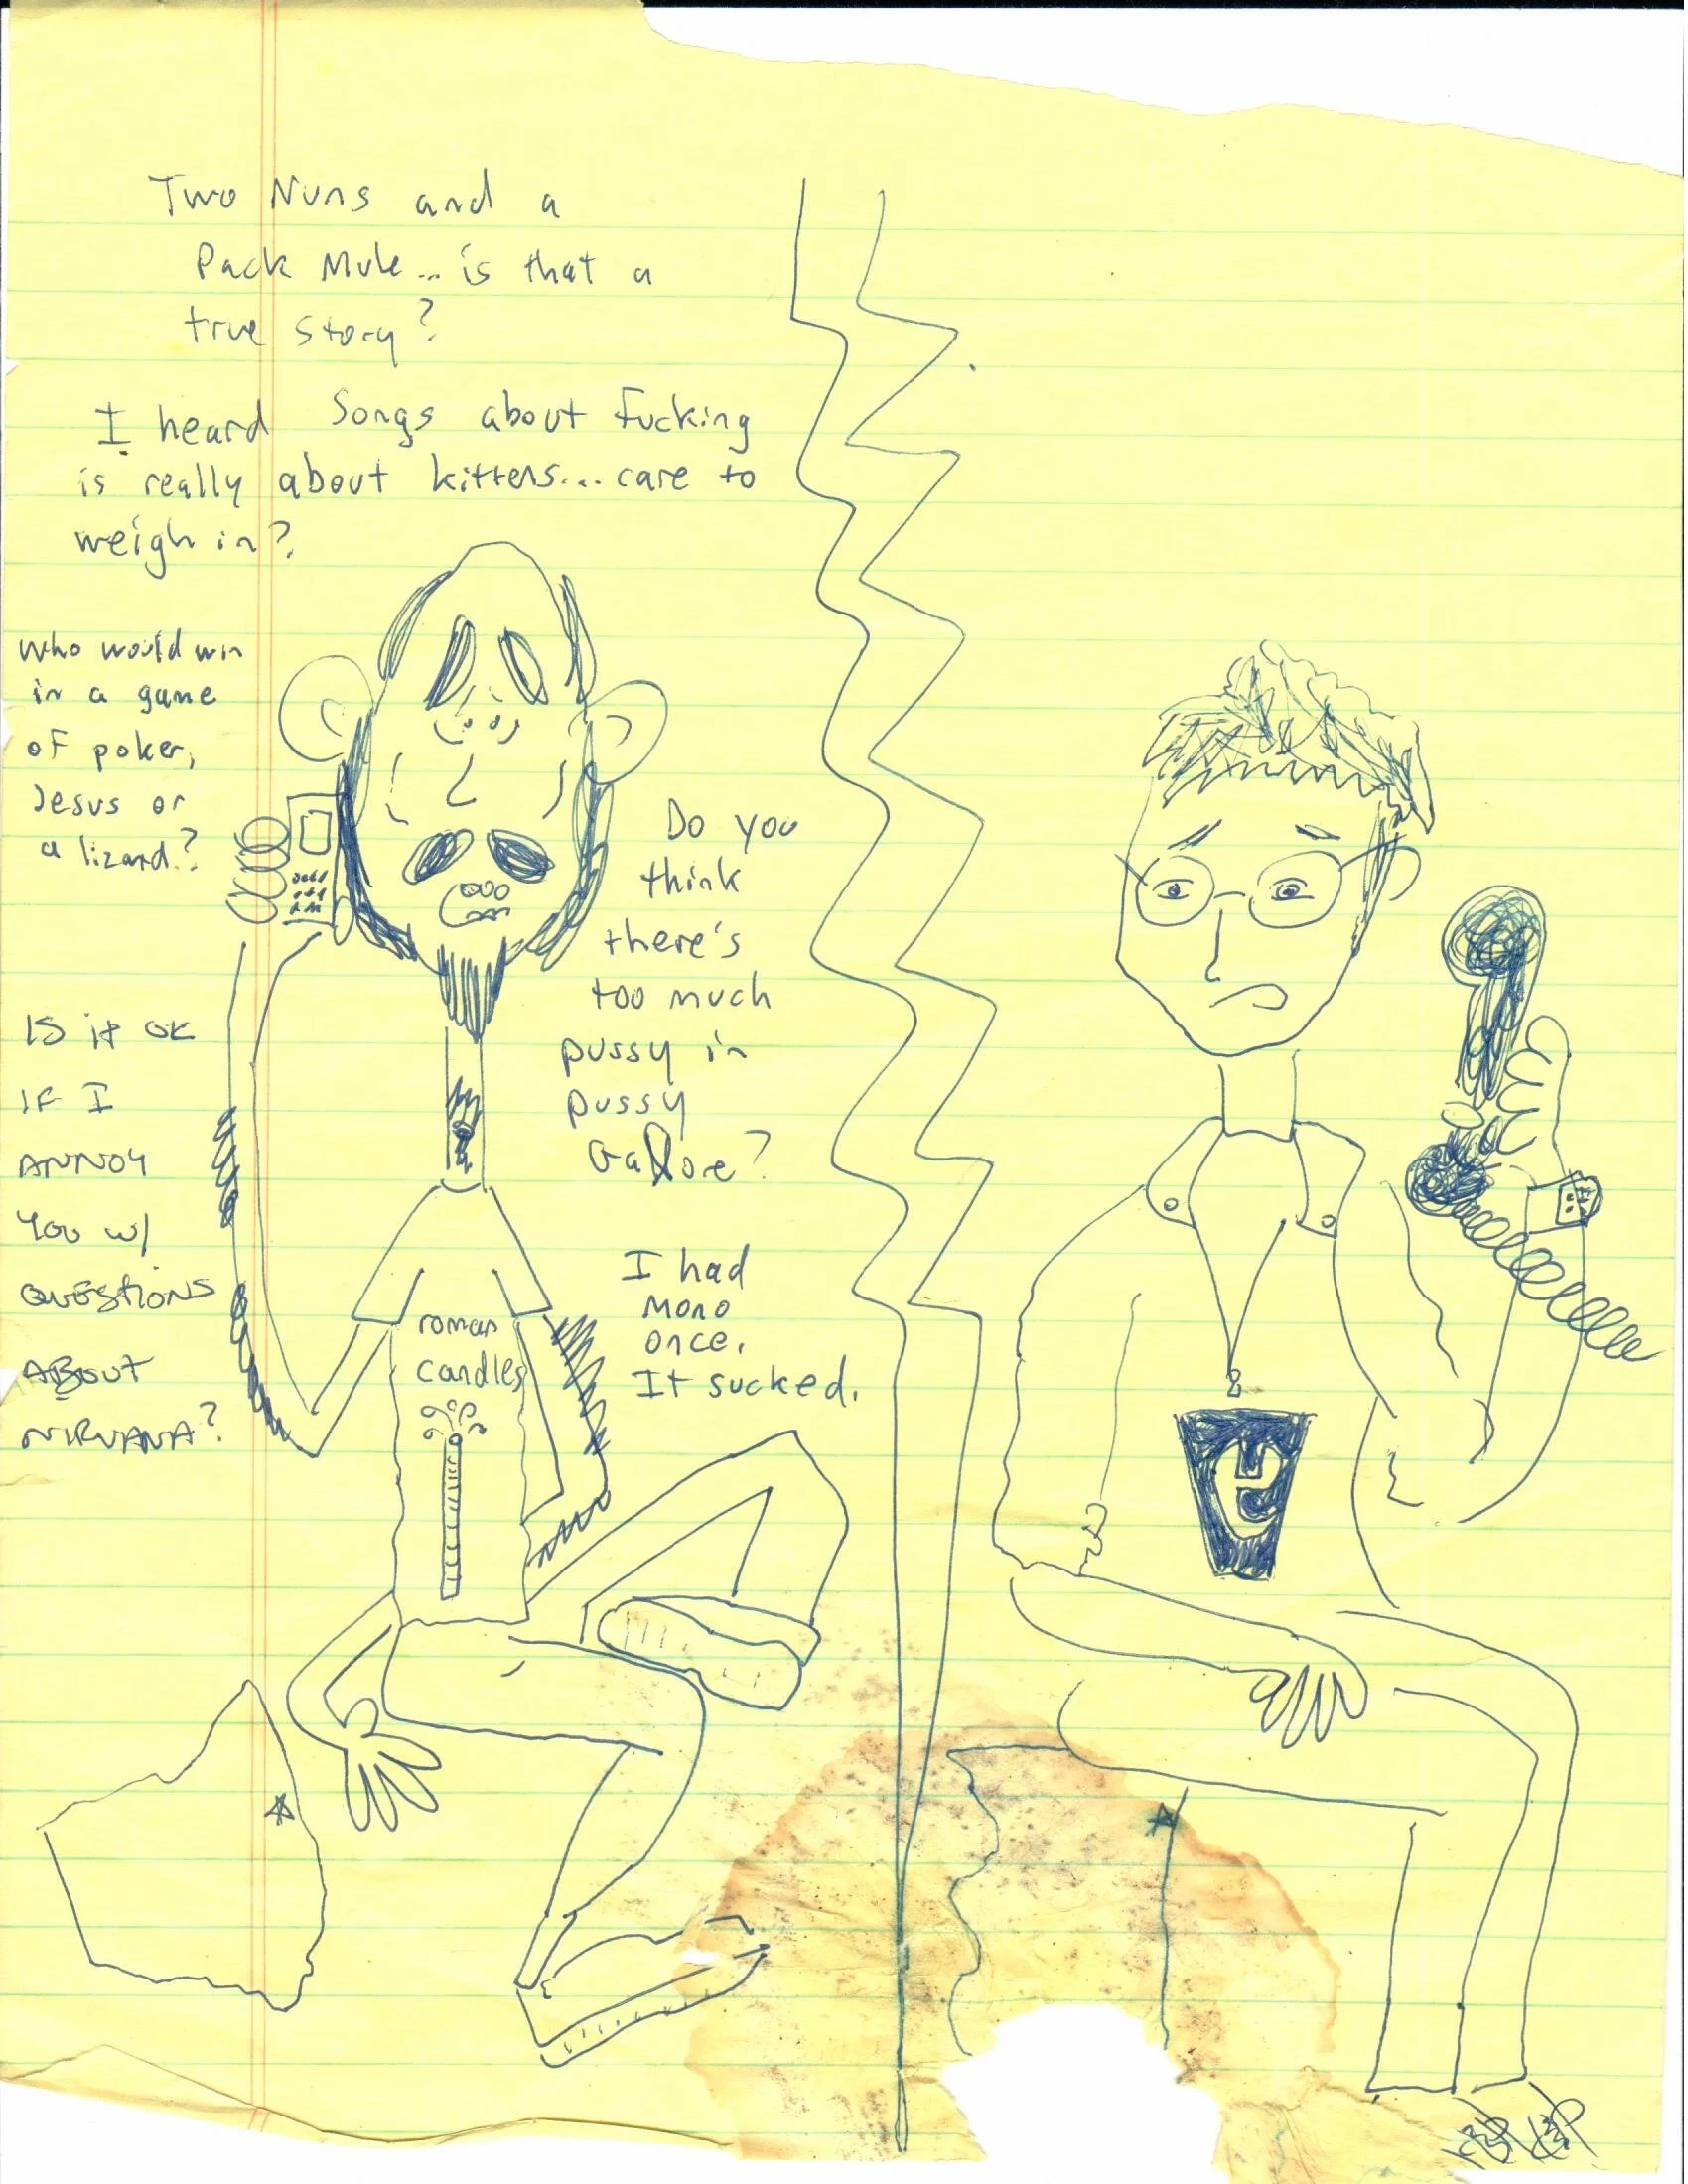 Two Nuns and a
Pack Mule... is that a
true story?
I heard Songs about Fucking
is really about kittens... care to
weigh in?
Who would win
in a game
of poker,
Jesus or
a lizard?
Do you
think
there's
too much
pussy in
pussy
Galore?
IS it OK
IF I
ANNOY
YOU w/
QUESTIONS
ABOUT
NIRVANA?
I had
Mono
once.
It sucked.
roman
candles